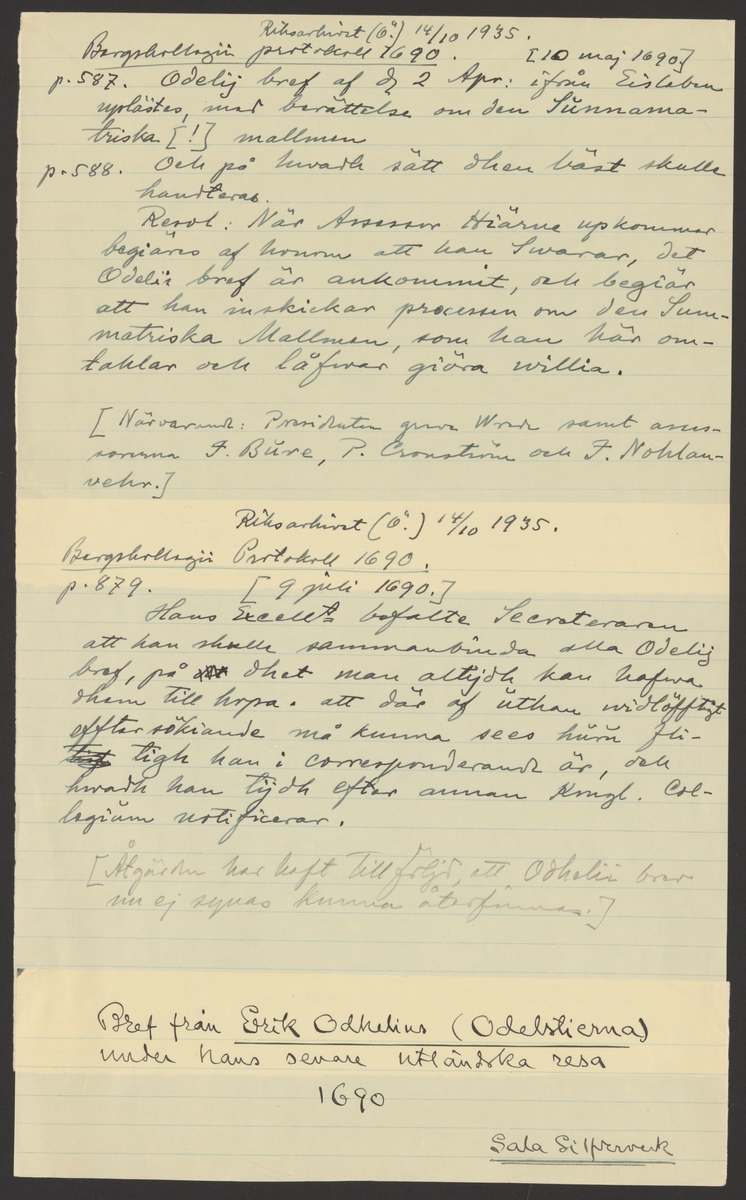 Riksarkivet (Ö.) 14/10 1935.
Bergskollegii protokoll 1690. [10 maj 1690]
p. 587. Odelij bref af d. 2 Apr: ifrån Eisleben
uplästes, med berättelse om den Sunnama-
triska [!] mallmen
p. 588. Och på hwadh sätt dhen bäst skulle
handteras.
Resol: När Assessor Hiärne upkommer
begiäres af honom att han Swarar, det
Odelii bref är ankommit, och begiär
att han inskickar processen om den Sum-
matriska Mallmen, som han här om-
tahlar och låfwar giöra willia.
[Närvarande: Presidenten greve Wrede samt asses-
sorerna F. Bure, P. Cronström och F. Nohlan-
vehr.]
Riksarkivet (Ö.) 14/10 1935.
Bergskollegii Protokoll 1690.
p. 879. [9 juli 1690.]
Hans Excellts befalte Secreteraren
att han skulle sammanbinda alla Odelij
bref, på dhet man altijdh kan hafwa
dhem till hopa. att där af uthan widlöfftigt
effter sökiande må kunna sees huru fli-
tigh han i corresponderande är, och
hwadh han tijdh efter annan Kongl. Col-
legium notificerar.
[Åtgärden har haft till följd, att Odhelii brev
nu ej synas kunna återfinnas.]
Bref från Erik Odhelius (Odelstierna)
under hans senare utländska resa
1690
Sala Silfververk